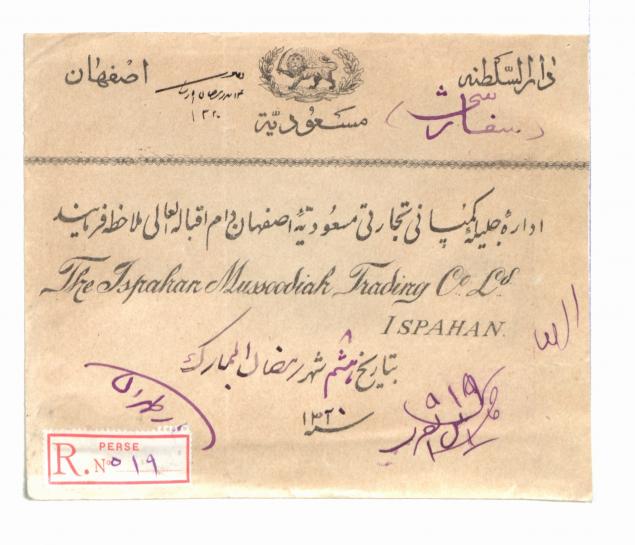 دارالسّلطنه اصفهان
سفارش
۱۳۲۰
مسعودیّه
ادارهٔ جلیلهٔ کمپانی تجارتی مسعودیّهٔ اصفهان دام اقباله العالی ملاحظه فرمایند
The Ispahan Mussoodiah Trading Co. Ld.
ISPAHAN.
بتاریخ هشتم شهر رمضان المبارک
سنه ۱۳۲۰
۵۱۹
طهران
PERSE
R. No ۵۱۹